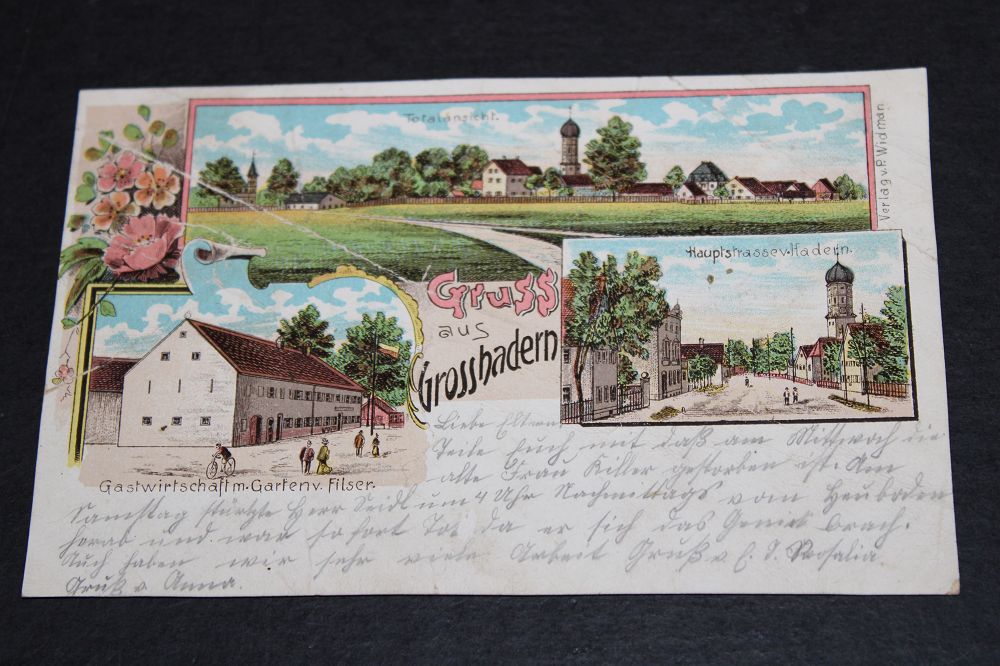 Totalansicht.
Verlag v. P. Widman.
Hauptstrasse v. Hadern.
Gruss
aus
Grosshadern
Gastwirtschaft m. Garten v. Filser.
Liebe Eltern
Teile Euch mit daß am Mittwoch die
alte Frau Killer gestorben ist. Am
Samstag stürzte Herr Seidl um 4 Uhr Nachmittags vom Heuboden
herab und war sofort Tot da er sich das Genick brach.
Auch haben wir sehr viele Arbeit Gruß v. E. T. Rosalia
Gruß v. Anna.